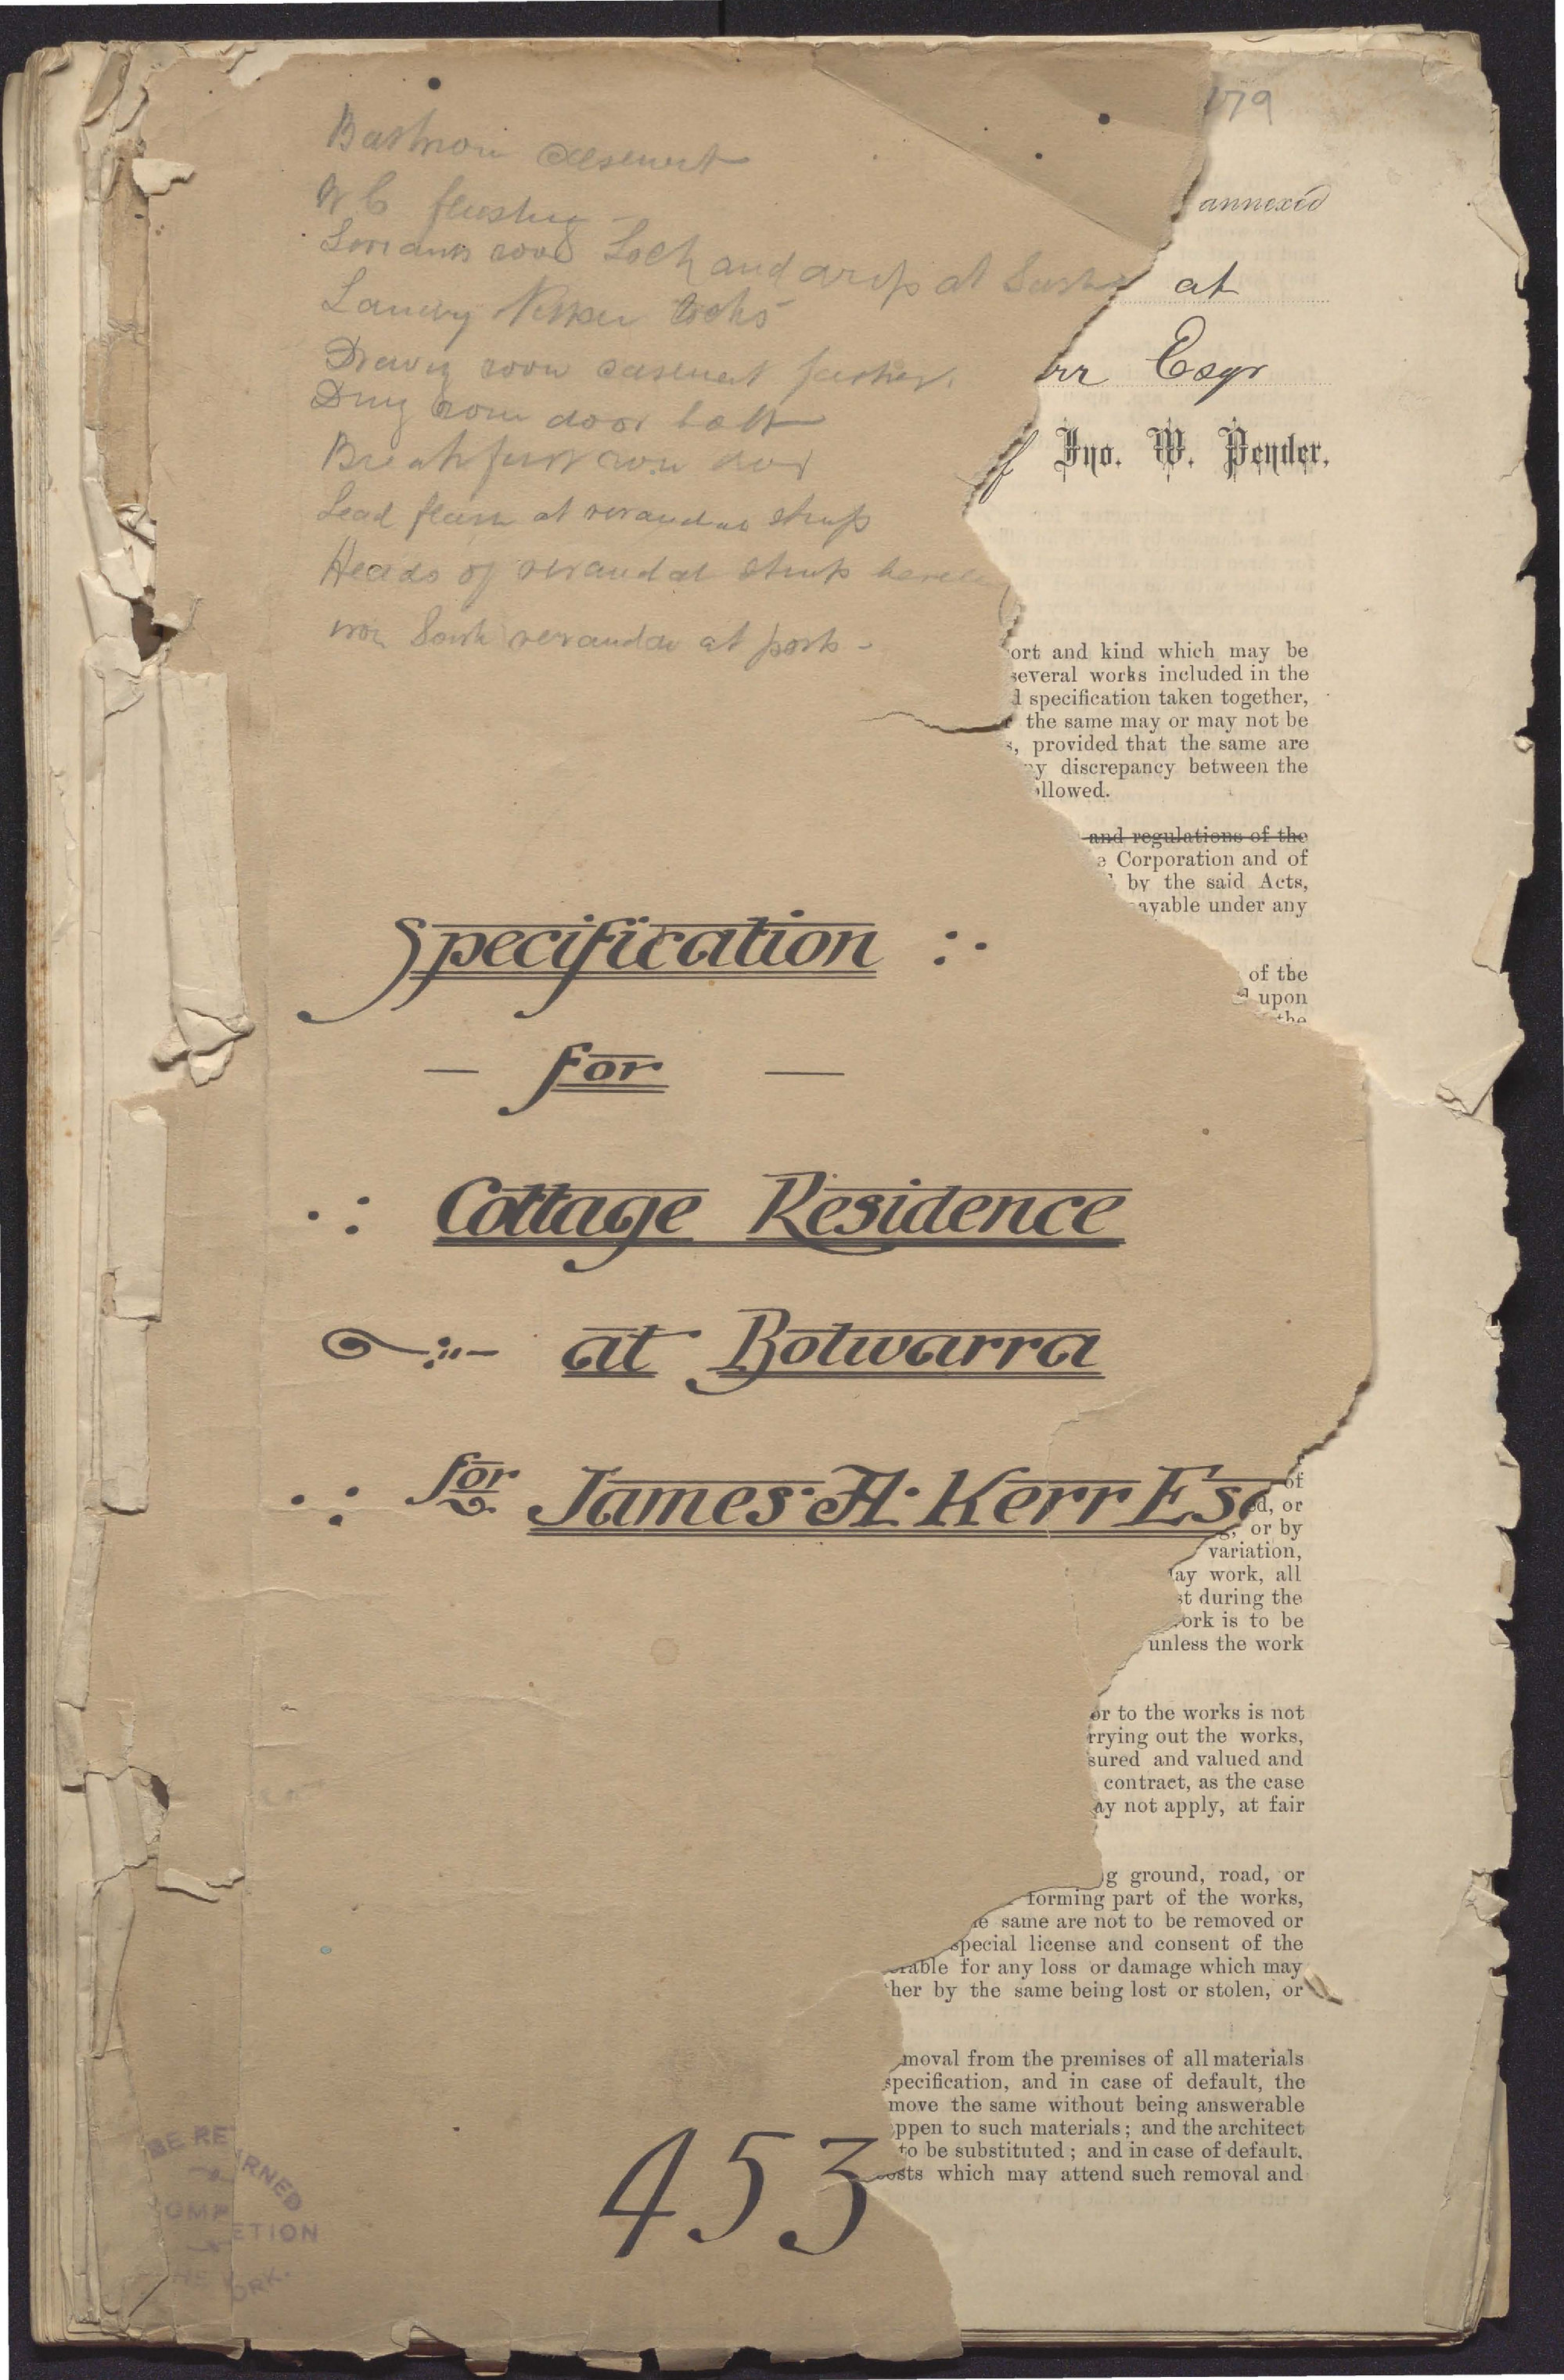 179
annexed
at
Esqr
Jno. W. Pender.
casement
W C flushing
room Lock and at
Drawing room casement
room door bolt
Breakfast room door
Lead flash at verandah struts
Heads of verandah struts
verandah at posts
ort and kind which may be
several works included in the
specification taken together,
the same may or may not be
s, provided that the same are
ny discrepancy between the
ollowed.
and regulations of the
e Corporation and of
by the said Acts,
ayable under any
of the
upon
the
Specification
for
Cottage Residence
at Bolwarra
for James A. Kerr Esq
of
ed, or
or by
variation,
ay work, all
st during the
ork is to be
unless the work
or to the works is not
rrying out the works,
sured and valued and
contract, as the case
ay not apply, at fair
g ground, road, or
forming part of the works,
same are not to be removed or
special license and consent of the
erable for any loss or damage which may
her by the same being lost or stolen, or
moval from the premises of all materials
specification, and in case of default, the
move the same without being answerable
ppen to such materials; and the architect
to be substituted; and in case of default,
osts which may attend such removal and
453
BE RE RNED
OMP ETION
HE ORK.